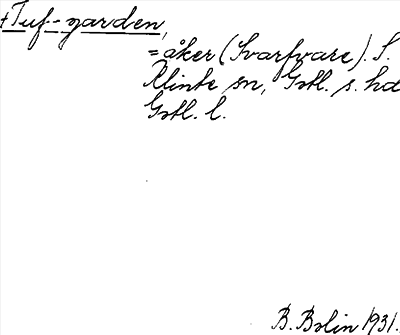 +Tuf-garden,
= åker (Svarfvare). S.
Klinte sn, Gotl. s. hd
Gotl. l.
B. Bolin 1931.